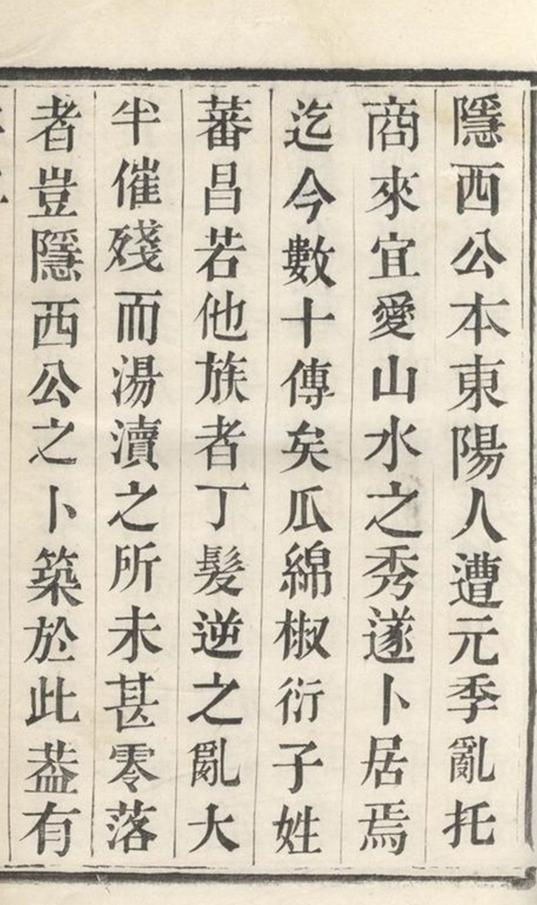 隱西公本東陽人遭元季亂托
商來宜愛山水之秀遂卜居焉
迄今數十傳矣瓜綿椒衍子姓
蕃昌若他族者丁髮逆之亂大
半催殘而湯瀆之所未甚零落
者豈隱西公之卜築於此葢有